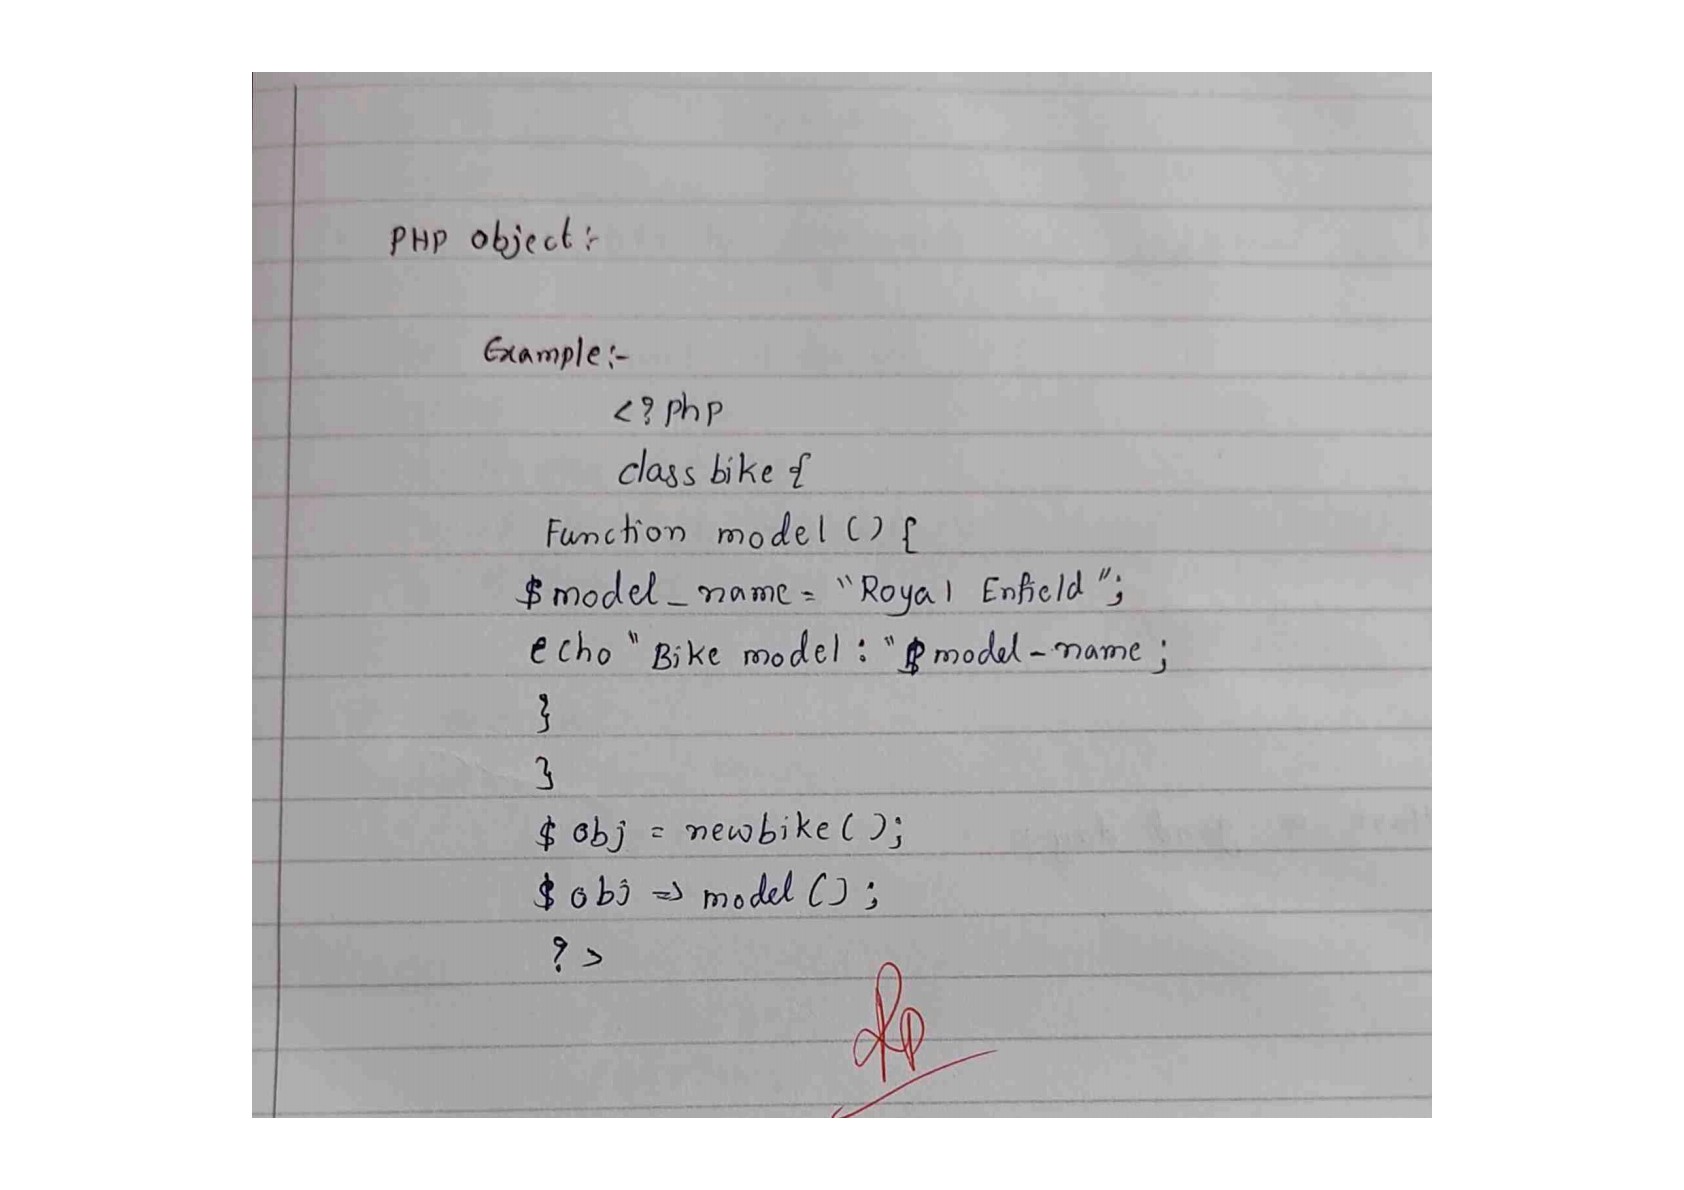 PHP object:-
Example:-
<?php
class bike {
Function model () {
$model_name = "Royal Enfield";
echo "Bike model : "$model-name ;
}
}
$ obj = newbike ( );
$ obj => model ( ) ;
? >